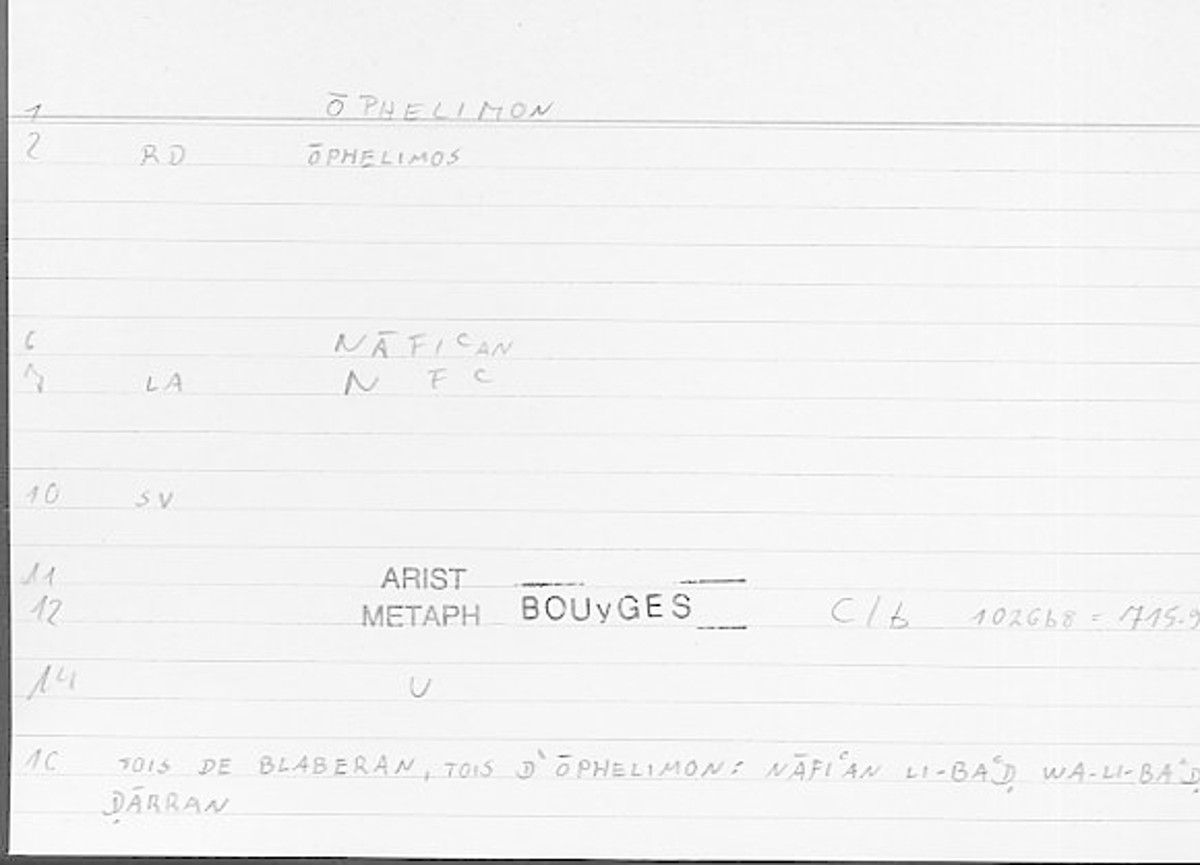 1 ŌPHELIMON
2 RD ŌPHELIMOS
6 NĀFIᶜAN
7 LA N F ᶜ
10 SV
11 ARIST
12 METAPH BOUyGES C/b 1026b8 = 715.9
14 U
16 TOIS DE BLABERAN, TOIS D' ŌPHELIMON: NĀFIᶜAN LI-BAᶜḌ WA-LI-BAᶜḌ
ḌĀRRAN